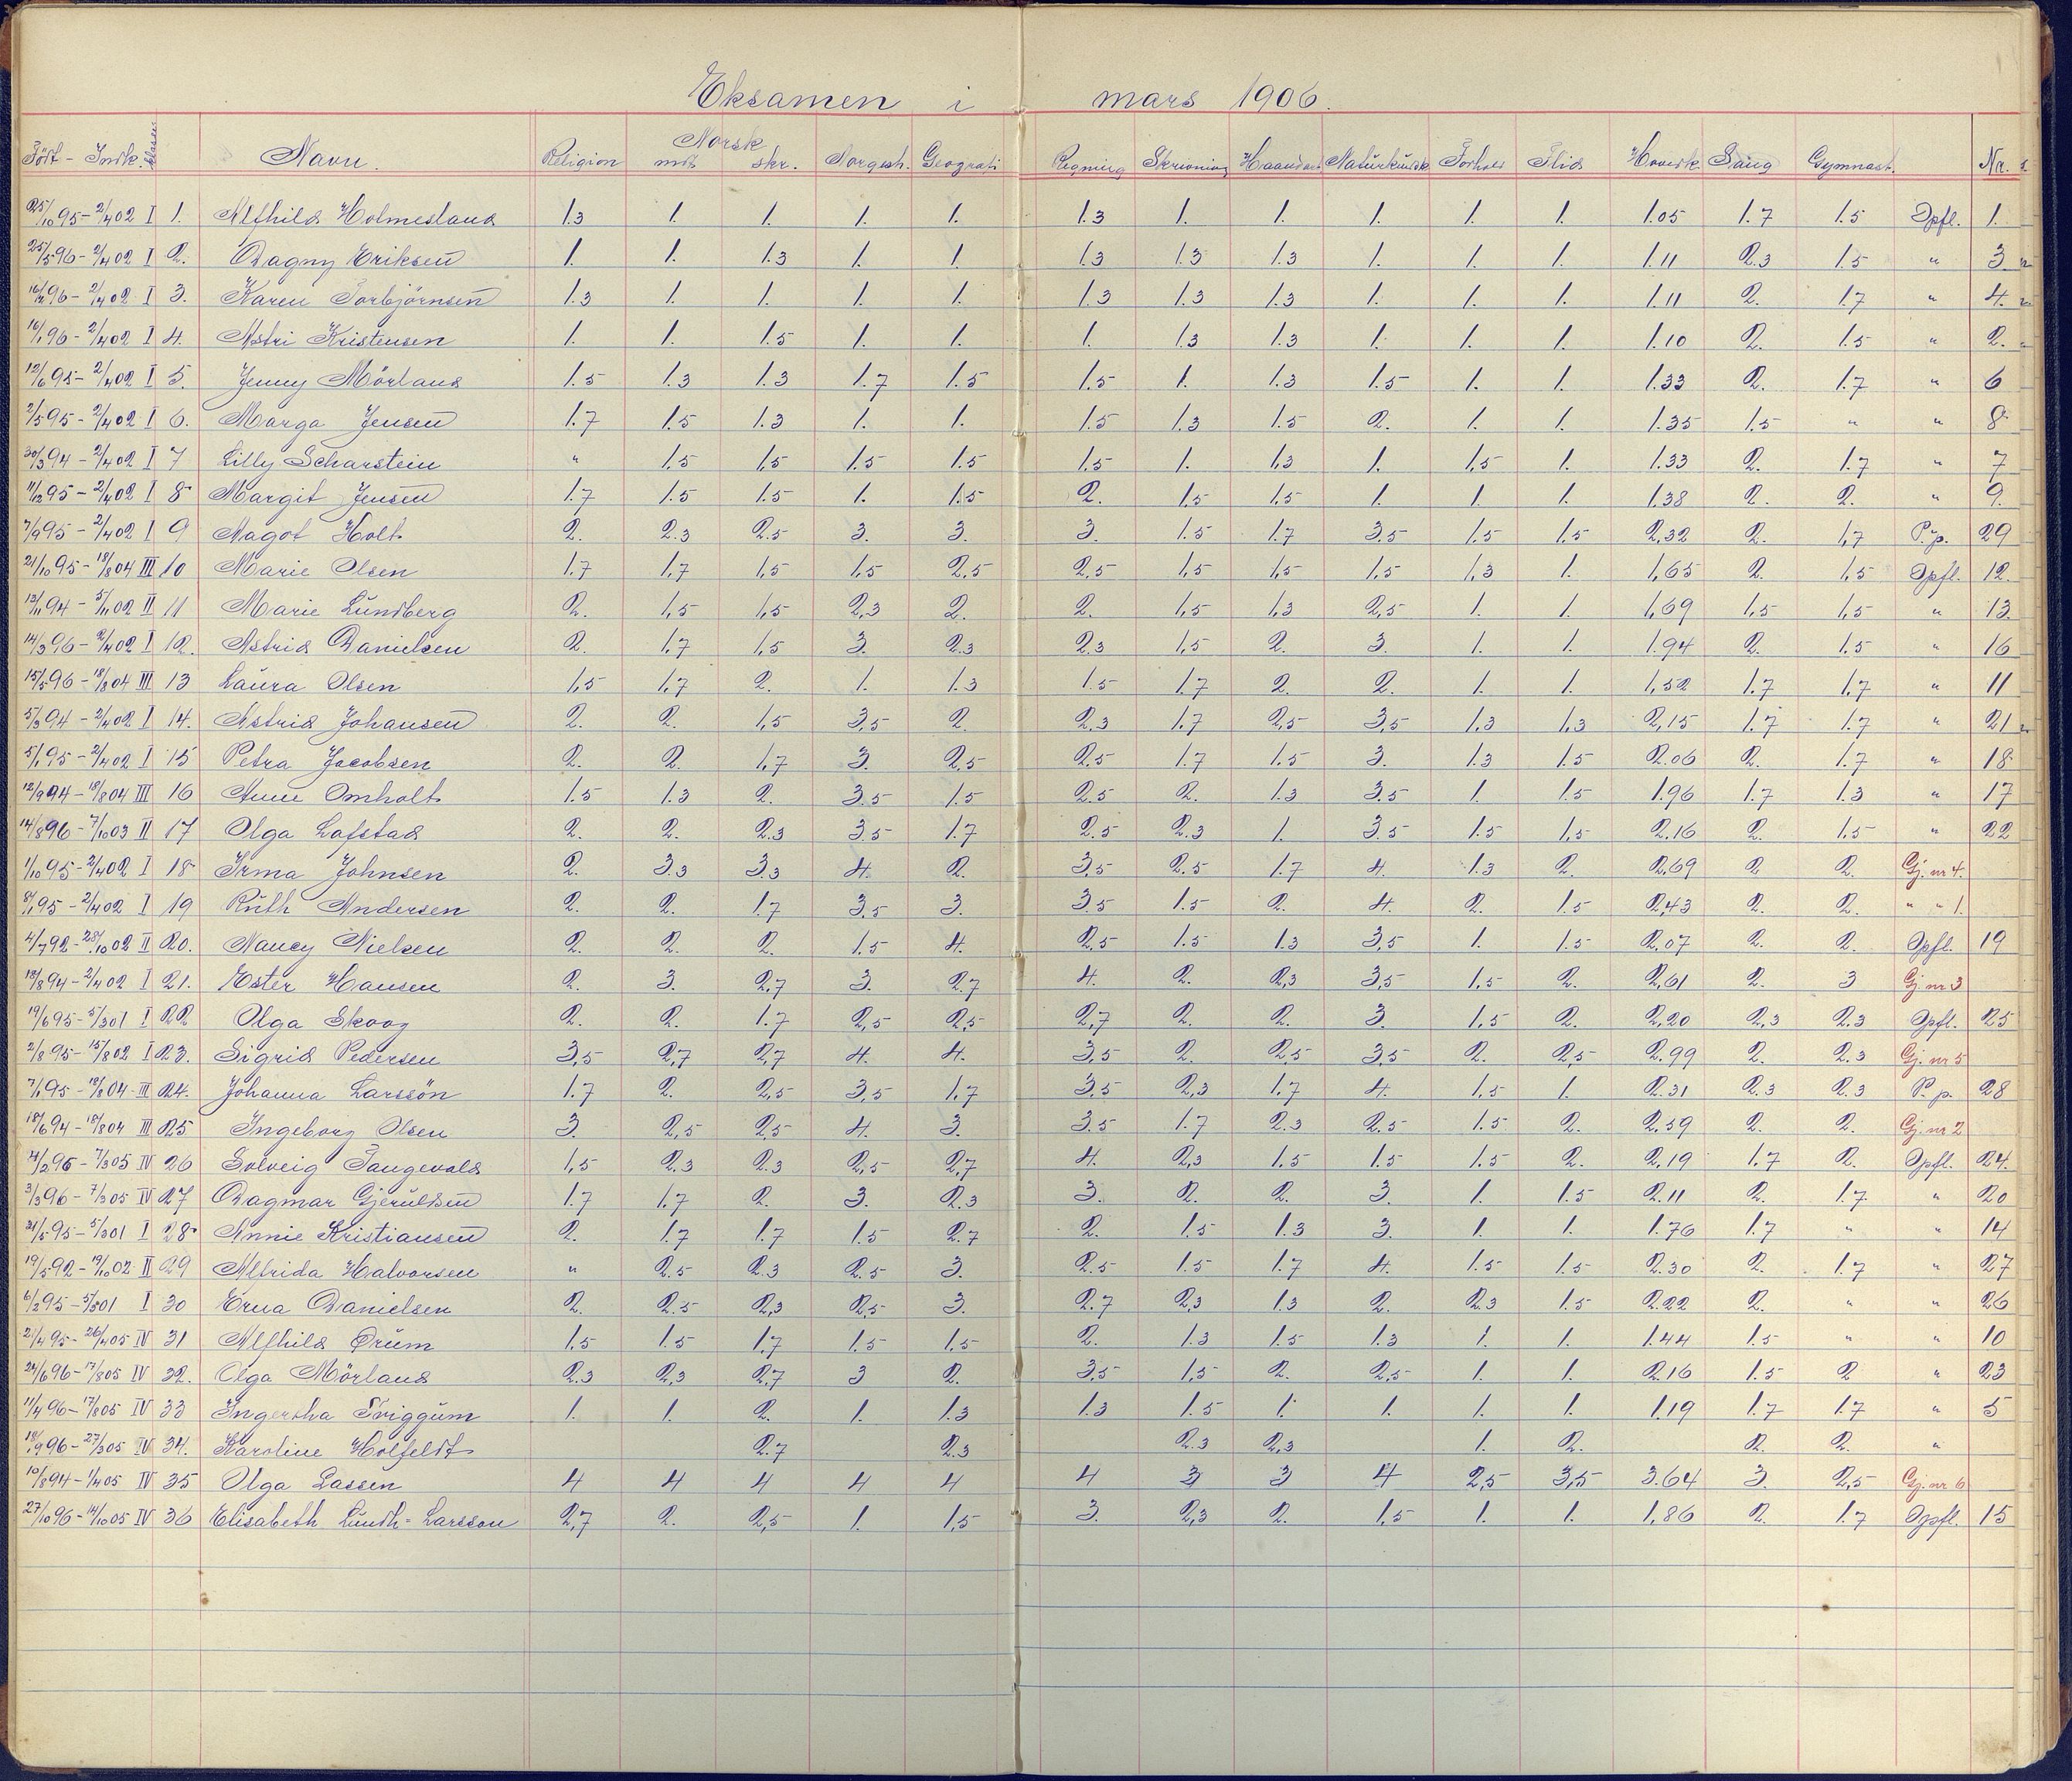 Eksamen i mars 1906.
Født - Indk. Klasse Navn. Religion Norsk mdt. skr. Norgesh. Geografi Regning Skrivning Haandarb. Naturkundsk. Forhold Flid Hovedk. Sang Gymnast. Nr.
25/10 95 - 2/4 02 I 1. Alfhild Holmesland 1.3 1. 1. 1. 1. 1.3 1. 1. 1. 1. 1. 1.05 1.7 1.5 Opfl. 1.
25/5 96 - 2/4 02 I 2. Dagny Eriksen 1. 1. 1.3 1. 1. 1.3 1.3 1.3 1. 1. 1. 1.11 2.3 1.5 " 3
16/2 96 - 2/4 02 I 3. Karen Torbjörnsen 1.3 1. 1. 1. 1. 1.3 1.3 1.3 1. 1. 1. 1.11 2. 1.7 " 4.
16/1 96 - 2/4 02 I 4. Astri Kristensen 1. 1. 1.5 1. 1. 1. 1.3 1.3 1. 1. 1. 1.10 2. 1.5 " 2.
12/6 95 - 2/4 02 I 5. Jenny Mörland 1.5 1.3 1.3 1.7 1.5 1.5 1. 1.3 1.5 1. 1. 1.33 2. 1.7 " 6
2/5 95 - 2/4 02 I 6. Marga Jensen 1.7 1.5 1.3 1. 1. 1.5 1.3 1.5 2. 1. 1. 1.35 1.5 " " 8
30/3 94 - 2/4 02 I 7 Lilly Scharstein " 1.5 1,5 1.5 1.5 1.5 1. 1,3 1. 1,5 1. 1.33 2. 1.7 " 7
11/12 95 - 2/4 02 I 8 Margit Jensen 1.7 1.5 1.5 1. 1.5 2. 1.5 1.5 1. 1. 1. 1.38 2. 2. " 9.
7/9 95 - 2/4 02 I 9 Magot Holt 2. 2.3 2.5 3. 3. 3. 1.5 1.7 3.5 1.5 1.5 2,32 2. 1,7 P.p. 29
21/10 95 - 18/8 04 III 10 Marie Olsen 1.7 1,7 1,5 1,5 2,5 2,5 1,5 1,5 1,5 1,3 1. 1,65 2. 1,5 Opfl. 12.
13/1 94 - 5/11 02 II 11 Marie Lundberg 2. 1,5 1,5 2,3 2. 2. 1,5 1,3 2,5 1. 1. 1,69 1,5 1,5 " 13.
14/3 96 - 2/4 02 I 12. Astrid Danielsen 2. 1,7 1,5 3. 2.3 2.3 1,5 2. 3. 1. 1. 1.94 2. 1.5 " 16
15/5 96 - 18/8 04 III 13 Laura Olsen 1,5 1,7 2. 1. 1.3 1.5 1.7 2. 2. 1. 1. 1,52 1.7 1,7 " 11
5/3 94 - 2/4 02 I 14. Astrid Johansen 2. 2. 1,5 3,5 2. 2,3 1.7 2,5 3,5 1.3 1,3 2,15 1.7 1.7 " 21
5/1 95 - 2/4 02 I 15 Petra Jacobsen 2. 2. 1,7 3. 2,5 2.5 1.7 1.5 3. 1.3 1.5 2.06 2. 1.7 " 18
12/9 94 - 18/8 04 III 16 Anne Omholt 1.5 1.3 2. 3.5 1.5 2.5 2. 1.3 3.5 1. 1.5 1.96 1.7 1.3 " 17
14/8 96 - 7/10 03 II 17 Olga Lafstad 2. 2. 2.3 3.5 1.7 2.5 2.3 1. 3.5 1.5 1,5 2.16 2. 1.5 " 22
1/10 95 - 2/4 02 I 18 Irma Johnsen 2. 3.3 3.3 4. 2. 3,5 2.5 1.7 4. 1.3 2. 2,69 2. 2. Gj. nr 4.
8/1 95 - 2/4 02 I 19 Ruth Andersen 2. 2. 1.7 3,5 3. 3.5 1.5 2. 4. 2. 1.5 2,43 2. 2. " " 1.
4/7 92 - 28/10 02 II 20. Nancy Nielsen 2. 2. 2. 1.5 4. 2,5 1.5 1.3 3,5 1. 1.5 2,07 2. 2. Opfl. 19
18/8 94 - 2/4 02 I 21. Ester Hansen 2. 3. 2,7 3. 2.7 4. 2. 2,3 3,5 1,5 2. 2,61 2. 3 Gj. nr 3
19/6 95 - 5/3 01 I 22 Olga Skoog 2. 2. 1.7 2,5 2,5 2,7 2. 2. 3. 1,5 2. 2,20 2,3 2.3 Opfl. 25
2/8 95 - 15/8 02 I 23. Sigrid Pedersen 3,5 2,7 2,7 4. 4. 3,5 2. 2,5 3,5 2. 2,5 2.99 2. 2.3 Gj. nr 5
7/1 95 - 18/8 04 III 24. Johanna Larssön 1.7 2. 2,5 3,5 1,7 3,5 2,3 1,7 4. 1,5 1. 2.31 2.3 2.3 P. p. 28
18/6 94 - 18/8 04 III 25 Ingeborg Olsen 3. 2,5 2,5 4. 3. 3.5 1.7 2.3 2.5 1.5 2. 2.59 2. 2. Gj. nr 2
4/2 96 - 7/3 05 IV 26 Solveig Tangevald 1,5 2.3 2.3 2,5 2,7 4. 2,3 1.5 1.5 1.5 2. 2,19 1.7 2. Opfl. 24.
3/3 96 - 7/3 05 IV 27 Dagmar Gjeruldsen 1.7 1.7 2. 3. 2.3 3. 2. 2. 3. 1. 1.5 2.11 2. 1.7 " 20
31/5 95 - 5/3 01 I 28 Annie Kristiansen 2. 1.7 1.7 1.5 2.7 2. 1.5 1.3 3. 1. 1. 1.76 1.7 " " 14
19/5 92 - 19/10 02 II 29 Alfrida Halvorsen " 2.5 2.3 2.5 3. 2.5 1.5 1.7 4. 1.5 1.5 2.30 2. 1.7 " 27
6/2 95 - 5/3 01 I 30 Erna Danielsen 2. 2.5 2,3 2,5 3. 2.7 2,3 1.3 2. 2.3 1.5 2.22 2. " " 26
21/4 95 - 26/4 05 IV 31 Alfhild Örum 1,5 1.5 1,7 1.5 1.5 2. 1.3 1.5 1.3 1. 1. 1.44 1.5 " " 10
24/6 96 - 17/8 05 IV 32. Olga Mörland 2.3 2,3 2.7 3 2. 3,5 1,5 2. 2,5 1. 1. 2.16 1.5 2 " 23
11/4 96 - 17/8 05 IV 33 Ingertha Triggum 1. 1. 2. 1. 1.3 1.3 1.5 1. 1. 1. 1. 1.19 1.7 1.7 " 5
18/9 96 - 27/3 05 IV 34. Karoline Holfeldt 2.7 2.3 2.3 2,3 1. 2. 2. 2. "
10/8 94 - 1/4 05 IV 35 Olga Lassen 4 4 4 4 4 4 3 3 4 2,5 3,5 3.64 3. 2,5 Gj. nr 6
27/10 96 - 14/10 05 IV 36 Elisabeth Lundh-Larsson 2,7 2. 2,5 1. 1,5 3. 2,3 2. 1,5 1. 1. 1,86 2. 1.7 Opfl. 15